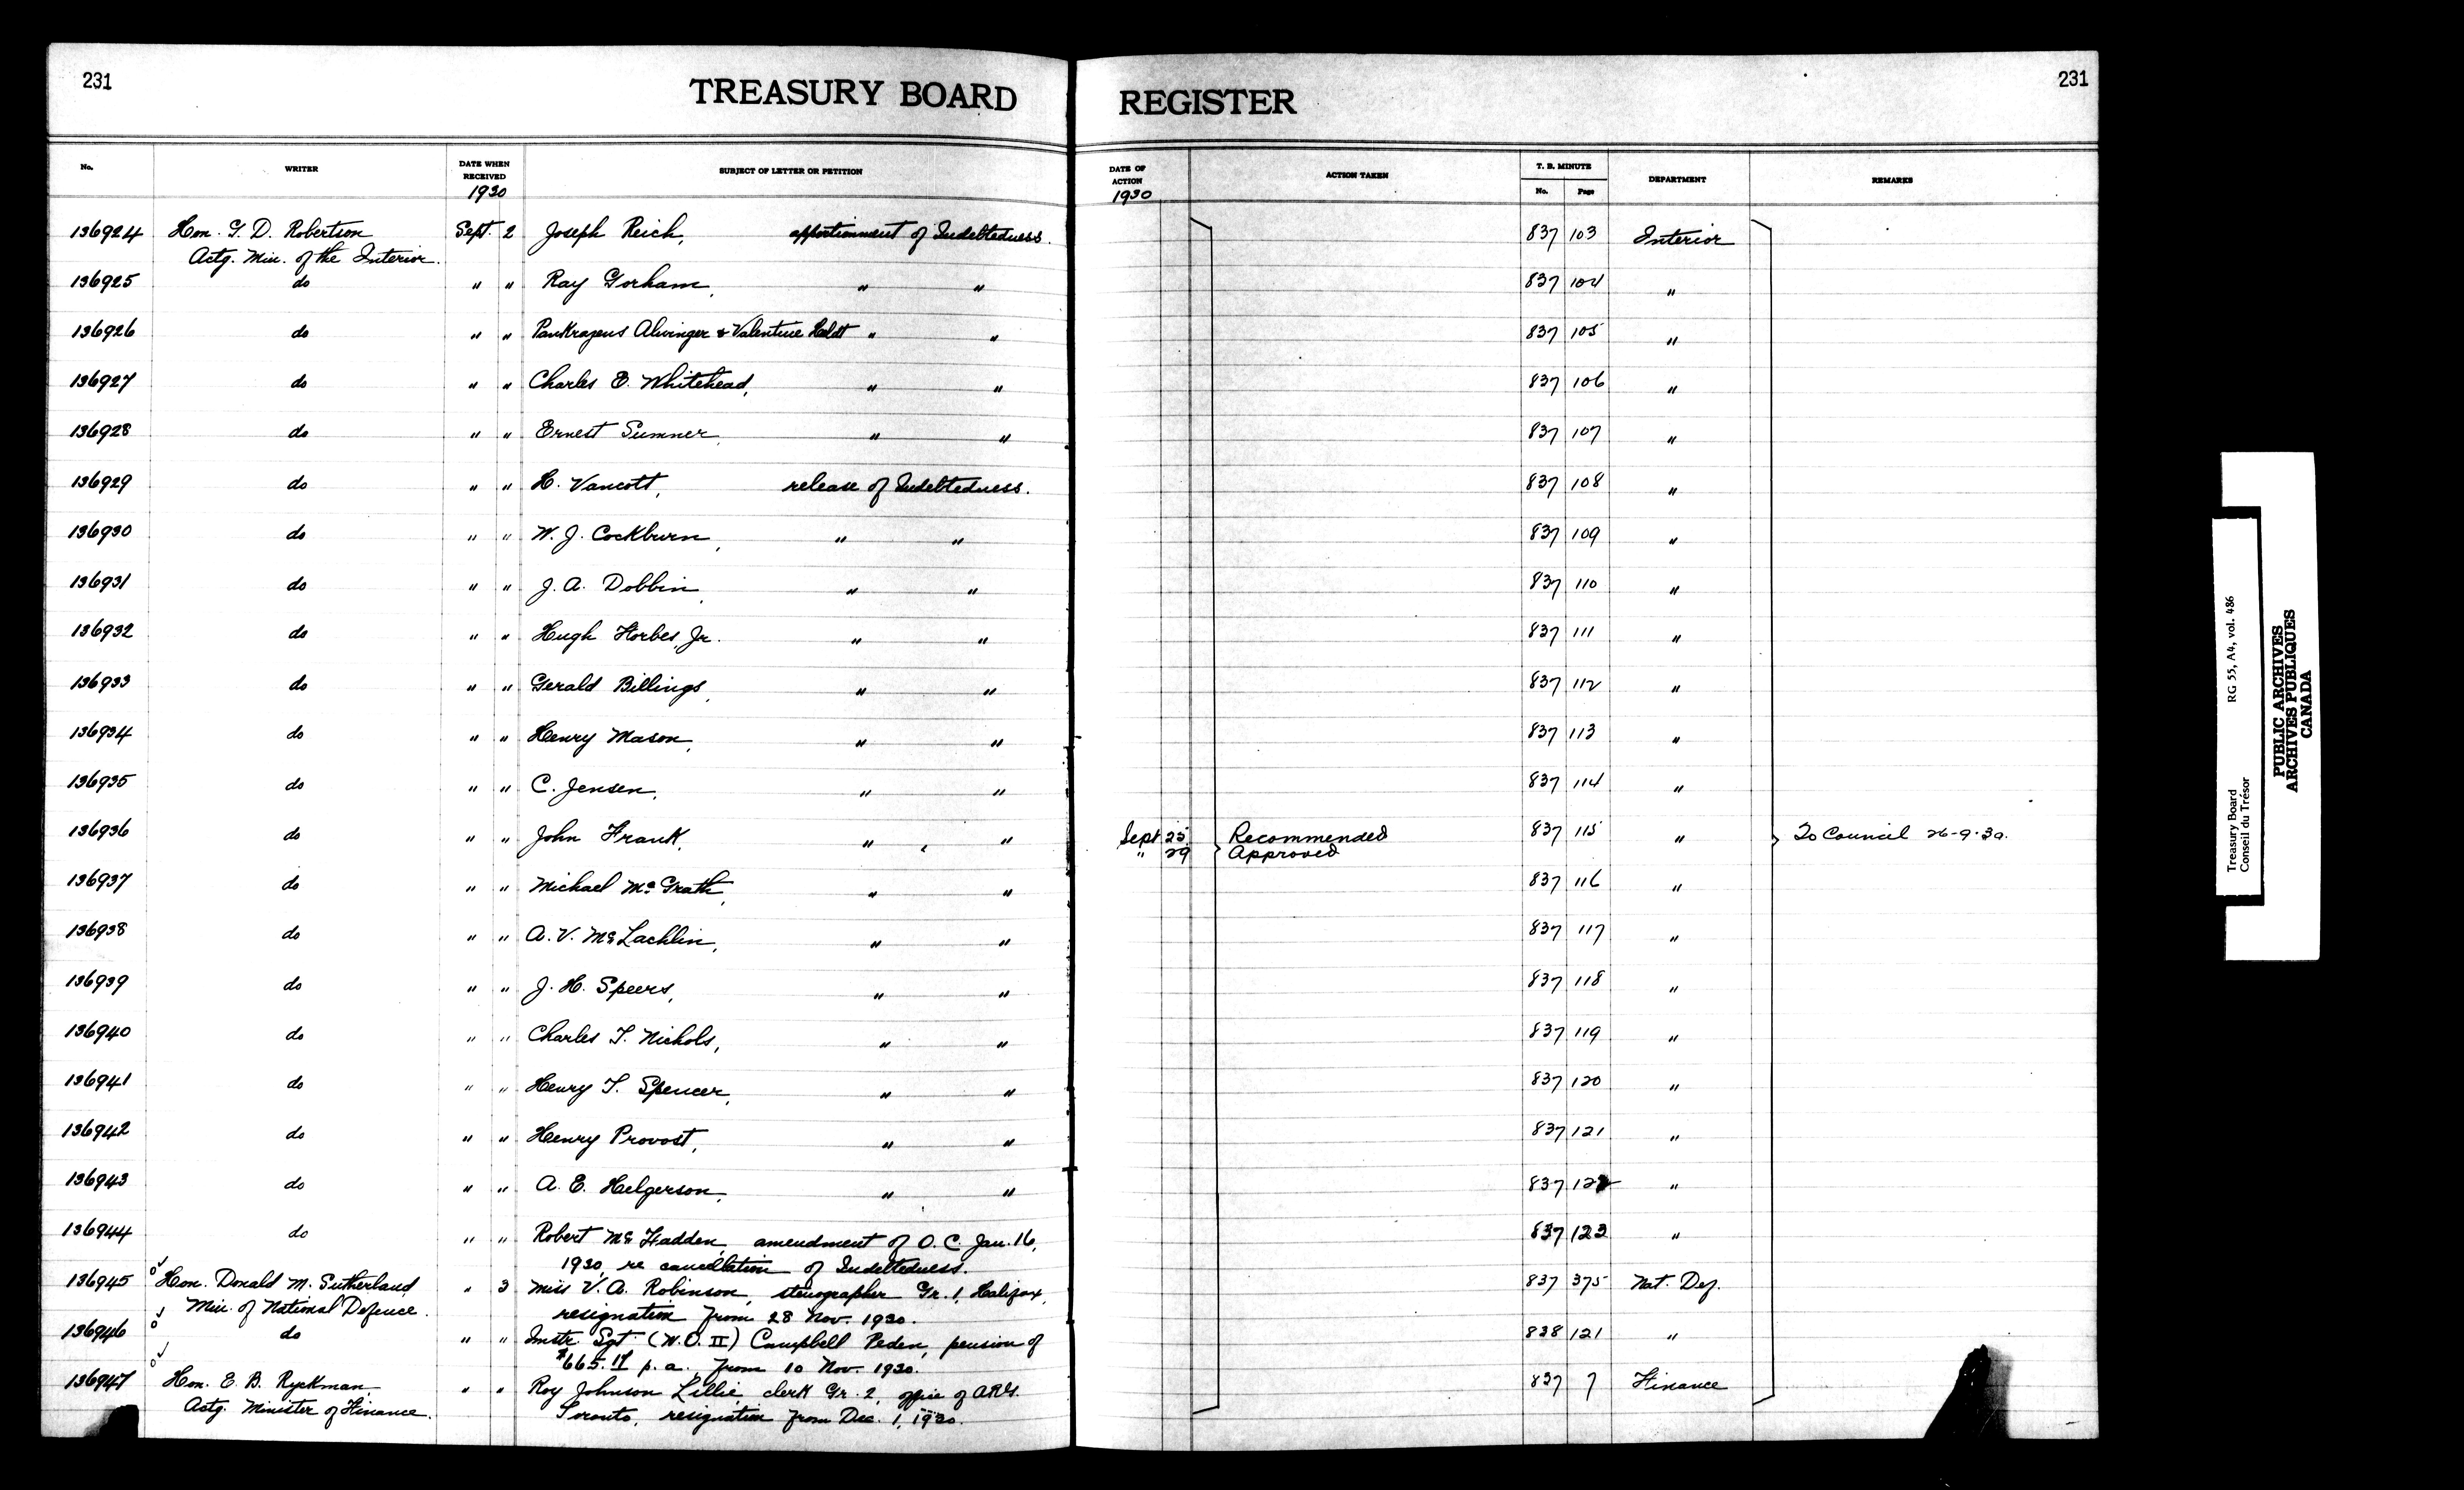 231
TREASURY BOARD
REGISTER
231
No.
WRITER
DATE WHEN RECEIVED
1930
SUBJECT OF LETTER OR PETITION
DATE OF ACTION
1930
ACTION TAKEN
T. B. MINUTE
No. Page
DEPARTMENT
REMARKS
136924 Hon. G. D. Robertson Sept. 2 Joseph Reich, apportionment of Indebtedness. 837 103 Interior
Actg. Min. of the Interior.
136925 do " " Ray Gorham, " " 837 104 "
136926 do " " Pankrazeus Alwinger & Valentine " " 837 105 "
136927 do " " Charles E. Whitehead, " " 837 106 "
136928 do " " Ernest Sumner, " " 837 107 "
136929 do " " H. Vancott, release of Indebtedness. 837 108 "
136930 do " " W. J. Cockburn, " " 837 109 "
136931 do " " J. A. Dobbin, " " 837 110 "
136932 do " " Hugh Forbes, Jr. " " 837 111 "
136933 do " " Gerald Billings, " " 837 112 "
136934 do " " Henry Mason, " " 837 113 "
136935 do " " C. Jensen, " " 837 114 "
136936 do " " John Frank, " " Sept 25 Recommended 837 115 " To Council 26-9-30.
" 29 Approved
136937 do " " Michael McGrath, " " 837 116 "
136938 do " " A. V. McLachlin, " " 837 117 "
136939 do " " J. H. Speers, " " 837 118 "
136940 do " " Charles T. Nichols, " " 837 119 "
136941 do " " Henry T. Spencer, " " 837 120 "
136942 do " " Henry Provost, " " 837 121 "
136943 do " " A. E. Helgerson, " " 837 122 "
136944 do " " Robert McFadden, amendment of O. C. Jan. 16, 837 123 "
1930, re cancellation of Indebtedness.
136945 Hon. Donald M. Sutherland " 3 Miss V. A. Robinson, stenographer Gr. 1, Halifax, 837 375 Nat. Def.
Min. of National Defence. resignation from 28 Nov. 1930.
136946 do " " Instr. Sgt (W.O. II) Campbell Peden, pension of 838 121 "
$665.17 p.a. from 10 Nov. 1930.
136947 Hon. E. B. Ryckman, " " Roy Johnson Lillie, clerk Gr. 2, office of A.R.G. 837 7 Finance
Actg. Minister of Finance. Toronto, resignation from Dec. 1, 1930.
Treasury Board RG 55, A4, vol. 486
Conseil du Trésor
PUBLIC ARCHIVES
ARCHIVES PUBLIQUES
CANADA